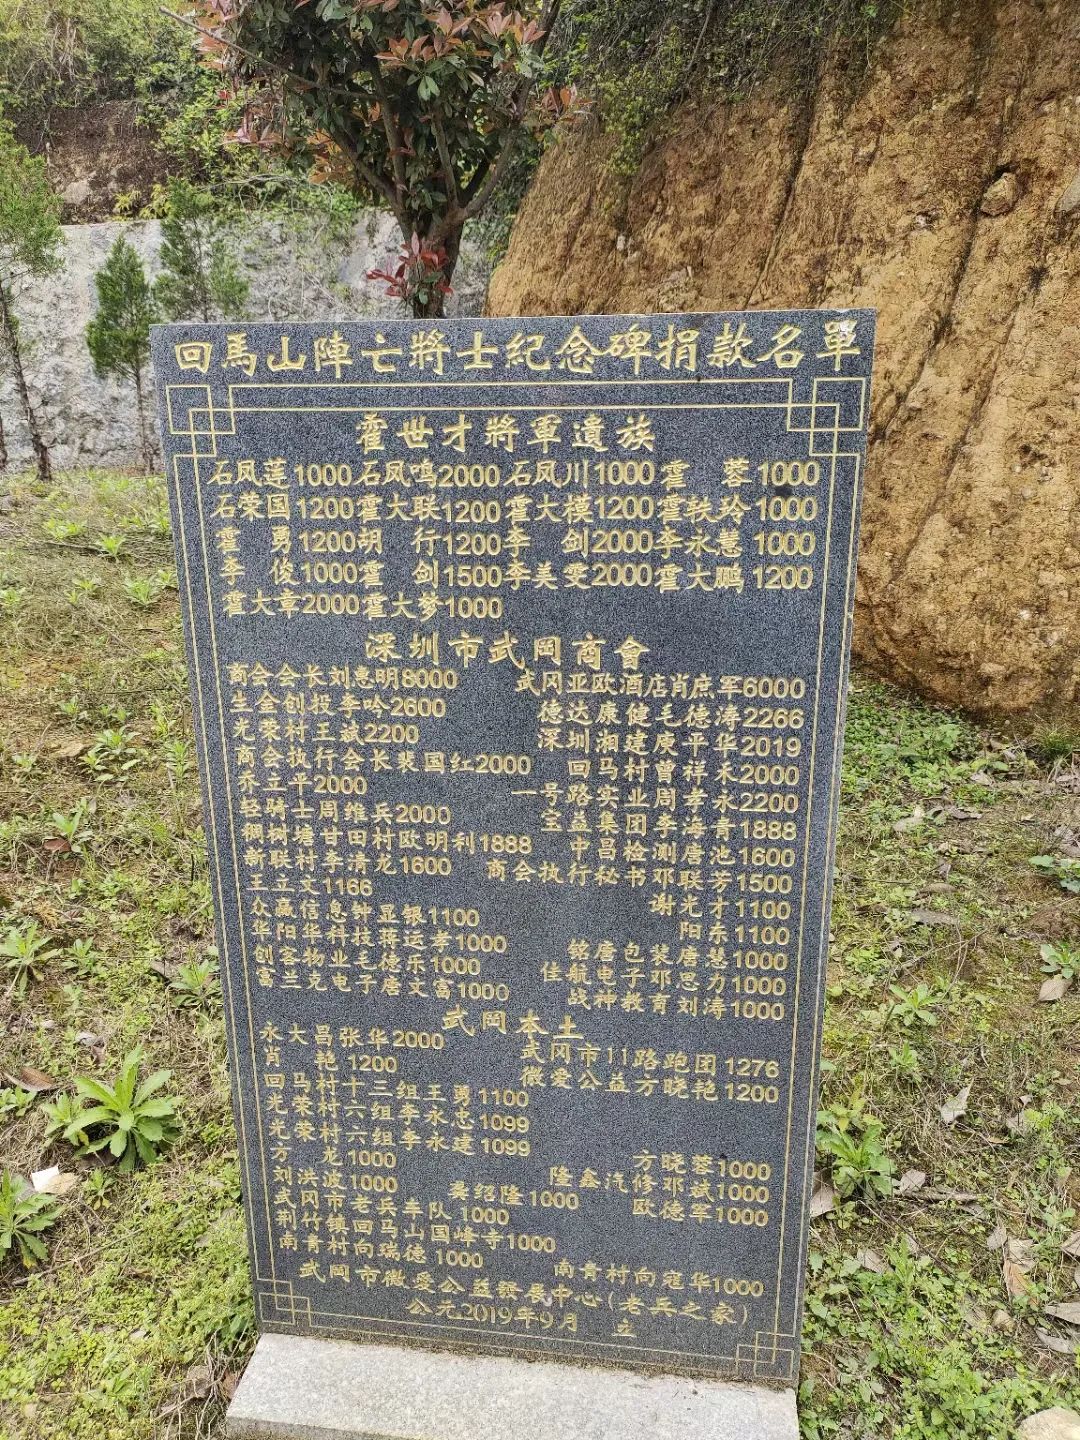 回馬山陣亡將士紀念碑捐款名單
霍世才將軍遺族
石凤莲1000石凤鸣2000石凤川1000霍 蓉1000
石荣国1200霍大联1200霍大模1200霍轶玲1000
霍 勇1200胡 行1200李 剑2000李永慧1000
李 俊1000霍 剑1500李美雯2000霍大鹏1200
霍大章2000霍大梦1000
深圳市武岡商會
商会会长刘惠明8000 武冈亚欧酒店肖庶军6000
生全创投李吟2600 德达康健毛德涛2266
光荣村王斌2200 深圳湘建庾平华2019
商会执行会长裴国红2000 回马村曾祥禾2000
乔立平2000 一号路实业周孝永2200
轻骑士周维兵2000 宝益集团李海青1888
稠树塘甘田村欧明利1888 中昌检测唐池1600
新联村李清龙1600 商会执行秘书邓联芳1500
王立文1166 谢光才1100
众赢信息钟显银1100 阳东1100
华阳华科技蒋运孝1000 铭唐包装唐慧1000
创客物业毛德乐1000 佳航电子邓思力1000
富兰克电子唐文富1000 战神教育刘涛1000
武岡本土
永大昌张华2000 武冈市11路跑团1276
肖 艳1200 微爱公益方晓艳1200
回马村十三组王勇1100
光荣村六组李永忠1099
光荣村六组李永建1099
方 龙1000 方晓蓉1000
刘洪波1000 龚绍隆1000 隆鑫汽修邓斌1000
武冈市老兵车队1000 欧德军1000
荆竹镇回马山国峰寺1000
南青村向瑞德1000 南青村向寇华1000
武岡市微愛公益發展中心(老兵之家)
公元2019年9月 立